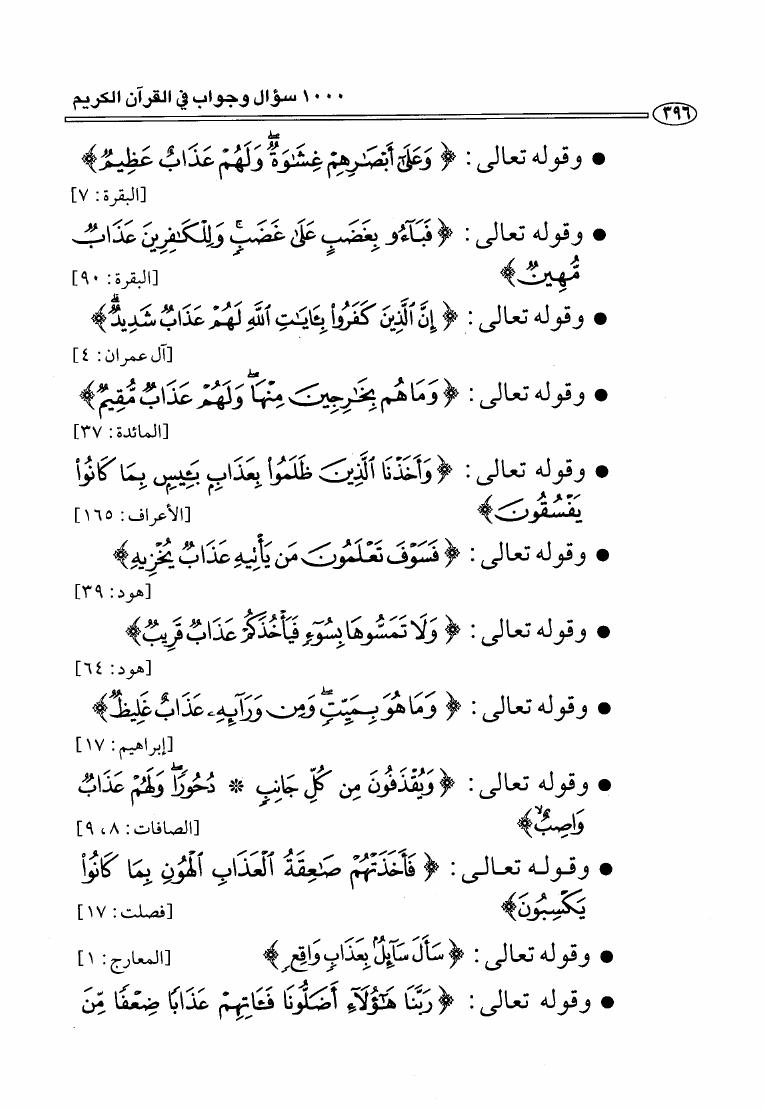 ١٠٠٠ سؤال وجواب في القرآن الكريم
٣٩٦
● وقوله تعالى: ﴿ وَعَلَىٰٓ أَبْصَٰرِهِمْ غِشَٰوَةٌۖ وَلَهُمْ عَذَابٌ عَظِيمٌ ﴾
[البقرة: ٧]
● وقوله تعالى: ﴿ فَبَآءُو بِغَضَبٍ عَلَىٰ غَضَبٍۚ وَلِلْكَٰفِرِينَ عَذَابٌ
مُّهِينٌ ﴾ [البقرة: ٩٠]
● وقوله تعالى: ﴿ إِنَّ ٱلَّذِينَ كَفَرُوا۟ بِـَٔايَٰتِ ٱللَّهِ لَهُمْ عَذَابٌ شَدِيدٌۗ ﴾
[آل عمران: ٤]
● وقوله تعالى: ﴿ وَمَا هُم بِخَٰرِجِينَ مِنْهَاۖ وَلَهُمْ عَذَابٌ مُّقِيمٌ ﴾
[المائدة: ٣٧]
● وقوله تعالى: ﴿ وَأَخَذْنَا ٱلَّذِينَ ظَلَمُوا۟ بِعَذَابٍۭ بَـِٔيسٍۭ بِمَا كَانُوا۟
يَفْسُقُونَ ﴾ [الأعراف: ١٦٥]
● وقوله تعالى: ﴿ فَسَوْفَ تَعْلَمُونَ مَن يَأْتِيهِ عَذَابٌ يُخْزِيهِ ﴾
[هود: ٣٩]
● وقوله تعالى: ﴿ وَلَا تَمَسُّوهَا بِسُوٓءٍ فَيَأْخُذَكُمْ عَذَابٌ قَرِيبٌ ﴾
[هود: ٦٤]
● وقوله تعالى: ﴿ وَمَا هُوَ بِمَيِّتٍۖ وَمِن وَرَآئِهِۦ عَذَابٌ غَلِيظٌ ﴾
[إبراهيم: ١٧]
● وقوله تعالى: ﴿ وَيُقْذَفُونَ مِن كُلِّ جَانِبٍ * دُحُورًاۖ وَلَهُمْ عَذَابٌ
وَاصِبٌ ﴾ [الصافات: ٨، ٩]
● وقوله تعالى: ﴿ فَأَخَذَتْهُمْ صَٰعِقَةُ ٱلْعَذَابِ ٱلْهُونِ بِمَا كَانُوا۟
يَكْسِبُونَ ﴾ [فصلت: ١٧]
● وقوله تعالى: ﴿ سَأَلَ سَآئِلٌۢ بِعَذَابٍ وَاقِعٍ ﴾ [المعارج: ١]
● وقوله تعالى: ﴿ رَبَّنَا هَٰٓؤُلَآءِ أَضَلُّونَا فَـَٔاتِهِمْ عَذَابًا ضِعْفًا مِّنَ